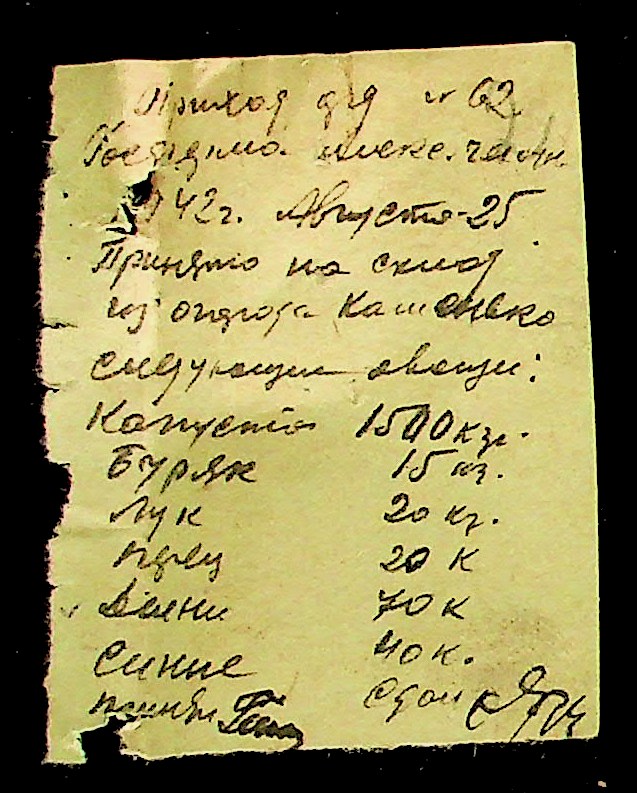 Приход № 62
1942 г. Августа 25
Принято на склад
из огорода Каменько
следующие овощи:
Капуста 1500 кг.
Буряк 15 кг.
Лук 20 кг.
перец 20 к
Дыни 70 к
Синие 40 к.
принял сдал